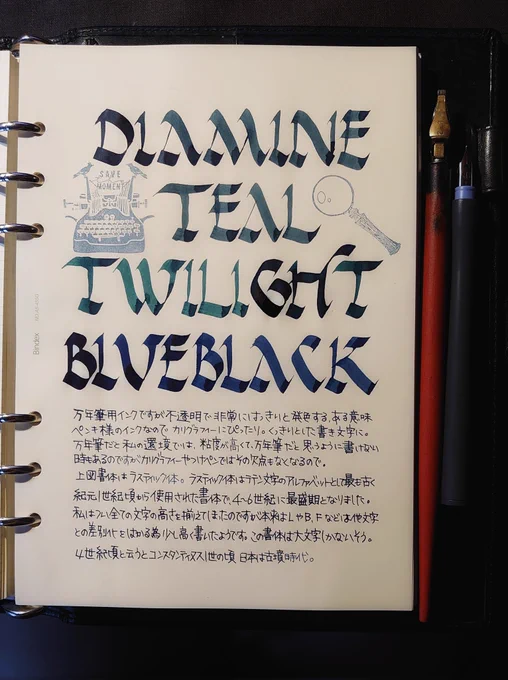 DIAMINE
SAVE
MOMENT
TEAL
TWILIGHT
BLUEBLACK
Bindex
万年筆用インクですが不透明で非常にはっきりと発色する、ある意味
ペンキ様のインクなので カリグラフィーにぴったり。くっきりとした書き文字に。
万年筆だと私の環境では、粘度が高くて、万年筆だと思うように書けない
時もあるのですがカリグラフィーやつけペンではその欠点もなくなるので。
上図書体はラスティック体。ラスティック体はラテン文字のアルファベットとして最も古く
紀元1世紀頃から使用された書体で、4~6世紀に最盛期となりました。
私はつい全ての文字の高さを揃えてしまたのですが本来はLやB,Fなどは他文字
との差別化をはかる為少し高く書いたようです。この書体は大文字しかないそう。
4世紀頃と云うとコンスタンティヌス1世の頃 日本は古墳時代。